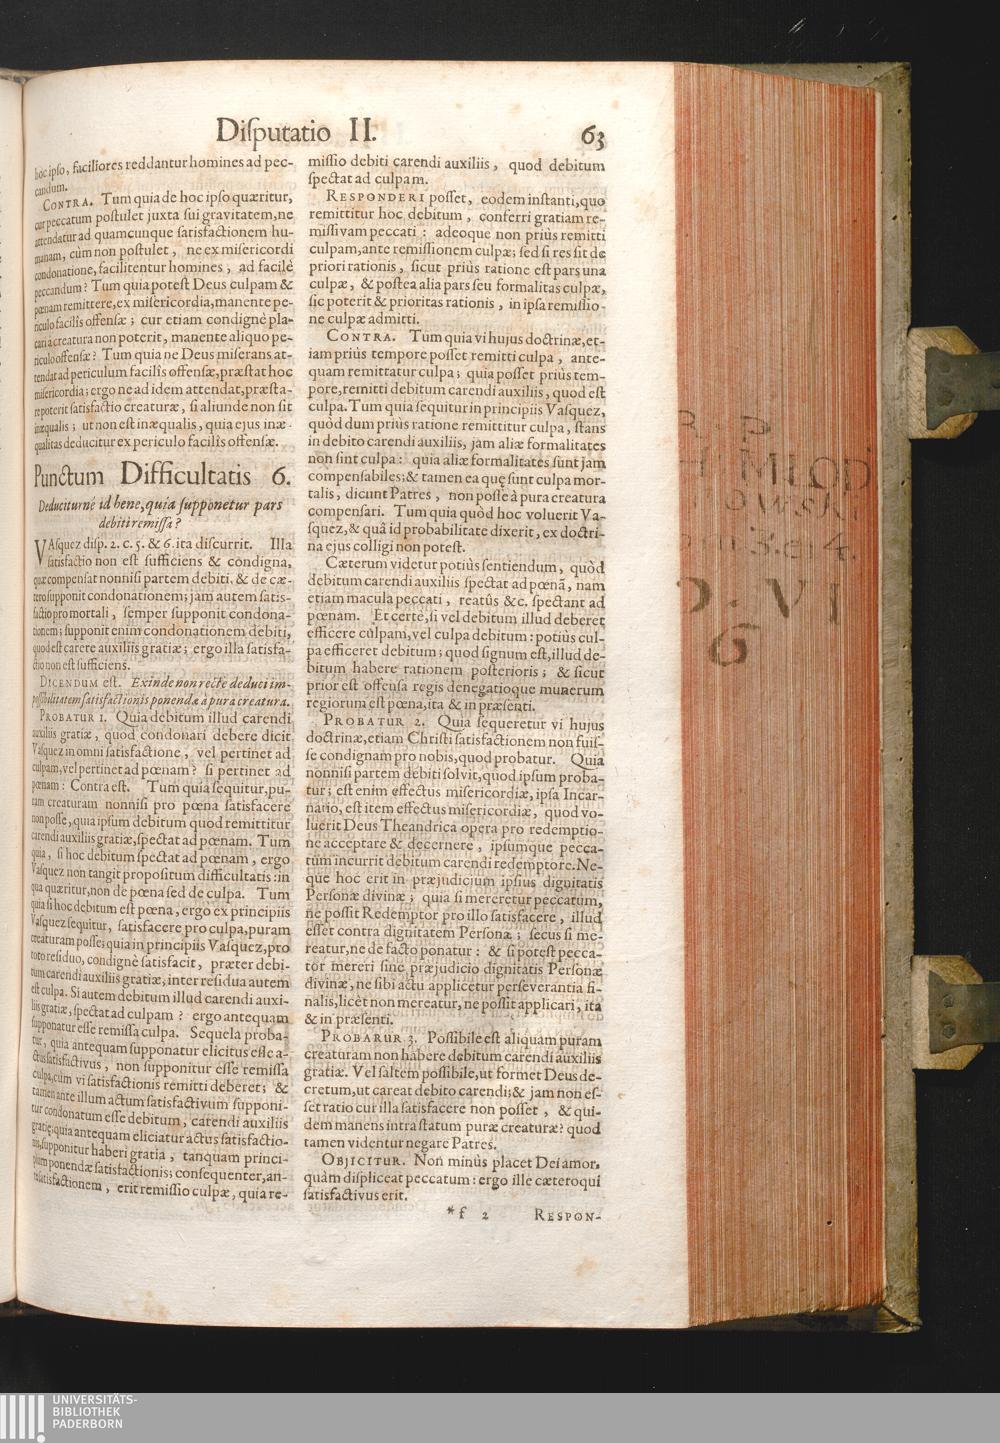 Disputatio II. 63
hoc ipso, faciliores reddantur homines ad pec-
candum.
CONTRA. Tum quia de hoc ipso quæritur,
cur peccatum postulet juxta sui gravitatem, ne
attendatur ad quamcunque satisfactionem hu-
manam, cùm non postulet, ne ex misericordi
condonatione, facilitentur homines, ad facilè
peccandum? Tum quia potest Deus culpam &
pœnam remittere, ex misericordia, manente pe-
riculo facilis offensæ; cur etiam condignè pla-
cari à creatura non poterit, manente aliquo pe-
riculo offensæ? Tum quia ne Deus miserans at-
tendat ad periculum facilis offensæ, præstat hoc
misericordia; ergo ne ad idem attendat, præsta-
re poterit satisfactio creaturæ, si aliunde non sit
inæqualis; ut non est inæqualis, quia ejus inæ-
qualitas deducitur ex periculo facilis offensæ.
Punctum Difficultatis 6.
Deduciturnè id bene, quia supponetur pars
debiti remissa?
VAsquez disp. 2. c. 5. & 6. ita discurrit. Illa
satisfactio non est sufficiens & condigna,
quæ compensat nonnisi partem debiti, & de cæ-
tero supponit condonationem; jam autem satis-
factio pro mortali, semper supponit condona-
tionem; supponit enim condonationem debiti,
quod est carere auxiliis gratiæ; ergo illa satisfa-
ctio non est sufficiens.
DICENDUM est. Exinde non rectè deduci im-
possibilitatem satisfactionis ponendæ à pura creatura.
PROBATUR 1. Quia debitum illud carendi
auxiliis gratiæ, quod condonari debere dicit
Vasquez in omni satisfactione, vel pertinet ad
culpam, vel pertinet ad pœnam? si pertinet ad
pœnam: Contra est. Tum quia sequitur, pu-
ram creaturam nonnisi pro pœna satisfacere
non posse, quia ipsum debitum quod remittitur
carendi auxiliis gratiæ, spectat ad pœnam. Tum
quia, si hoc debitum spectat ad pœnam, ergo
Vasquez non tangit propositum difficultatis: in
qua quæritur, non de pœna sed de culpa. Tum
quia si hoc debitum est pœna, ergo ex principiis
Vasquez sequitur, satisfacere pro culpa, puram
creaturam posse; quia in principiis Vasquez, pro
toto residuo, condignè satisfacit, præter debi-
tum carendi auxiliis gratiæ; inter residua autem
est culpa. Si autem debitum illud carendi auxi-
liis gratiæ, spectat ad culpam? ergo antequam
supponatur esse remissa culpa. Sequela proba-
tur, quia antequam supponatur elicitus esse a-
ctus satisfactivus, non supponitur esse remissa
culpa, cùm vi satisfactionis remitti deberet; &
tamen ante illum actum satisfactivum supponi-
tur condonatum esse debitum, carendi auxiliis
gratiæ; quia antequam eliciatur actus satisfactio-
nis, supponitur haberi gratia, tanquam princi-
pium ponendæ satisfactionis; consequenter, an-
te satisfactionem, erit remissio culpæ, quia re-
missio debiti carendi auxiliis, quod debitum
spectat ad culpam.
RESPONDERI posset, eodem instanti, quo
remittitur hoc debitum, conferri gratiam re-
missivam peccati: adeoque non priùs remitti
culpam, ante remissionem culpæ; sed si res sit de
priori rationis, sicut priùs ratione est pars una
culpæ, & postea alia pars seu formalitas culpæ,
sic poterit & prioritas rationis, in ipsa remissio-
ne culpæ admitti.
CONTRA. Tum quia vi hujus doctrinæ, et-
iam priùs tempore posset remitti culpa, ante-
quam remittatur culpa; quia posset priùs tem-
pore, remitti debitum carendi auxiliis, quod est
culpa. Tum quia sequitur in principiis Vasquez,
quòd dum priùs ratione remittitur culpa, stans
in debito carendi auxiliis, jam aliæ formalitates
non sint culpa: quia aliæ formalitates sunt jam
compensabiles; & tamen ea quę sunt culpa mor-
talis, dicunt Patres, non posse à pura creatura
compensari. Tum quia quòd hoc voluerit Va-
squez, & quâ id probabilitate dixerit, ex doctri-
na ejus colligi non potest.
Cæterum videtur potiùs sentiendum, quòd
debitum carendi auxiliis spectat ad pœnã, nam
etiam macula peccati, reatûs &c. spectant ad
pœnam. Et certè, si vel debitum illud deberet
efficere culpam, vel culpa debitum: potiùs cul-
pa efficeret debitum; quod signum est, illud de-
bitum habere rationem posterioris; & sicut
prior est offensa regis denegatioque munerum
regiorum est pœna, ita & in præsenti.
PROBATUR 2. Quia sequeretur vi hujus
doctrinæ, etiam Christi satisfactionem non fuis-
se condignam pro nobis, quod probatur. Quia
nonnisi partem debiti solvit, quod ipsum proba-
tur; est enim effectus misericordiæ, ipsa Incar-
natio, est item effectus misericordiæ, quod vo-
luerit Deus Theandrica opera pro redemptio-
ne acceptare & decernere, ipsumque pecca-
tum incurrit debitum carendi redemptore. Ne-
que hoc erit in præjudicium ipsius dignitatis
Personæ divinæ; quia si mereretur peccatum,
ne possit Redemptor pro illo satisfacere, illud
esset contra dignitatem Personæ; secus si me-
reatur, ne de facto ponatur: & si potest pecca-
tor mereri sine præjudicio dignitatis Personæ
divinæ, ne sibi actu applicetur perseverantia fi-
nalis, licèt non mereatur, ne possit applicari, ita
& in præsenti.
PROBARUR 3. Possibile est aliquam puram
creaturam non habere debitum carendi auxiliis
gratiæ. Vel saltem possibile, ut formet Deus de-
cretum, ut careat debito carendi; & jam non es-
set ratio cur illa satisfacere non posset, & qui-
dem manens intra statum puræ creaturæ? quod
tamen videntur negare Patres.
OBJICITUR. Non minùs placet Dei amor,
quàm displiceat peccatum: ergo ille cæteroqui
satisfactivus erit.
*f 2 RESPON-
R. P.
MŁOD
OWSK
3. e. 4.
VI
6
UNIVERSITÄTS-
BIBLIOTHEK
PADERBORN